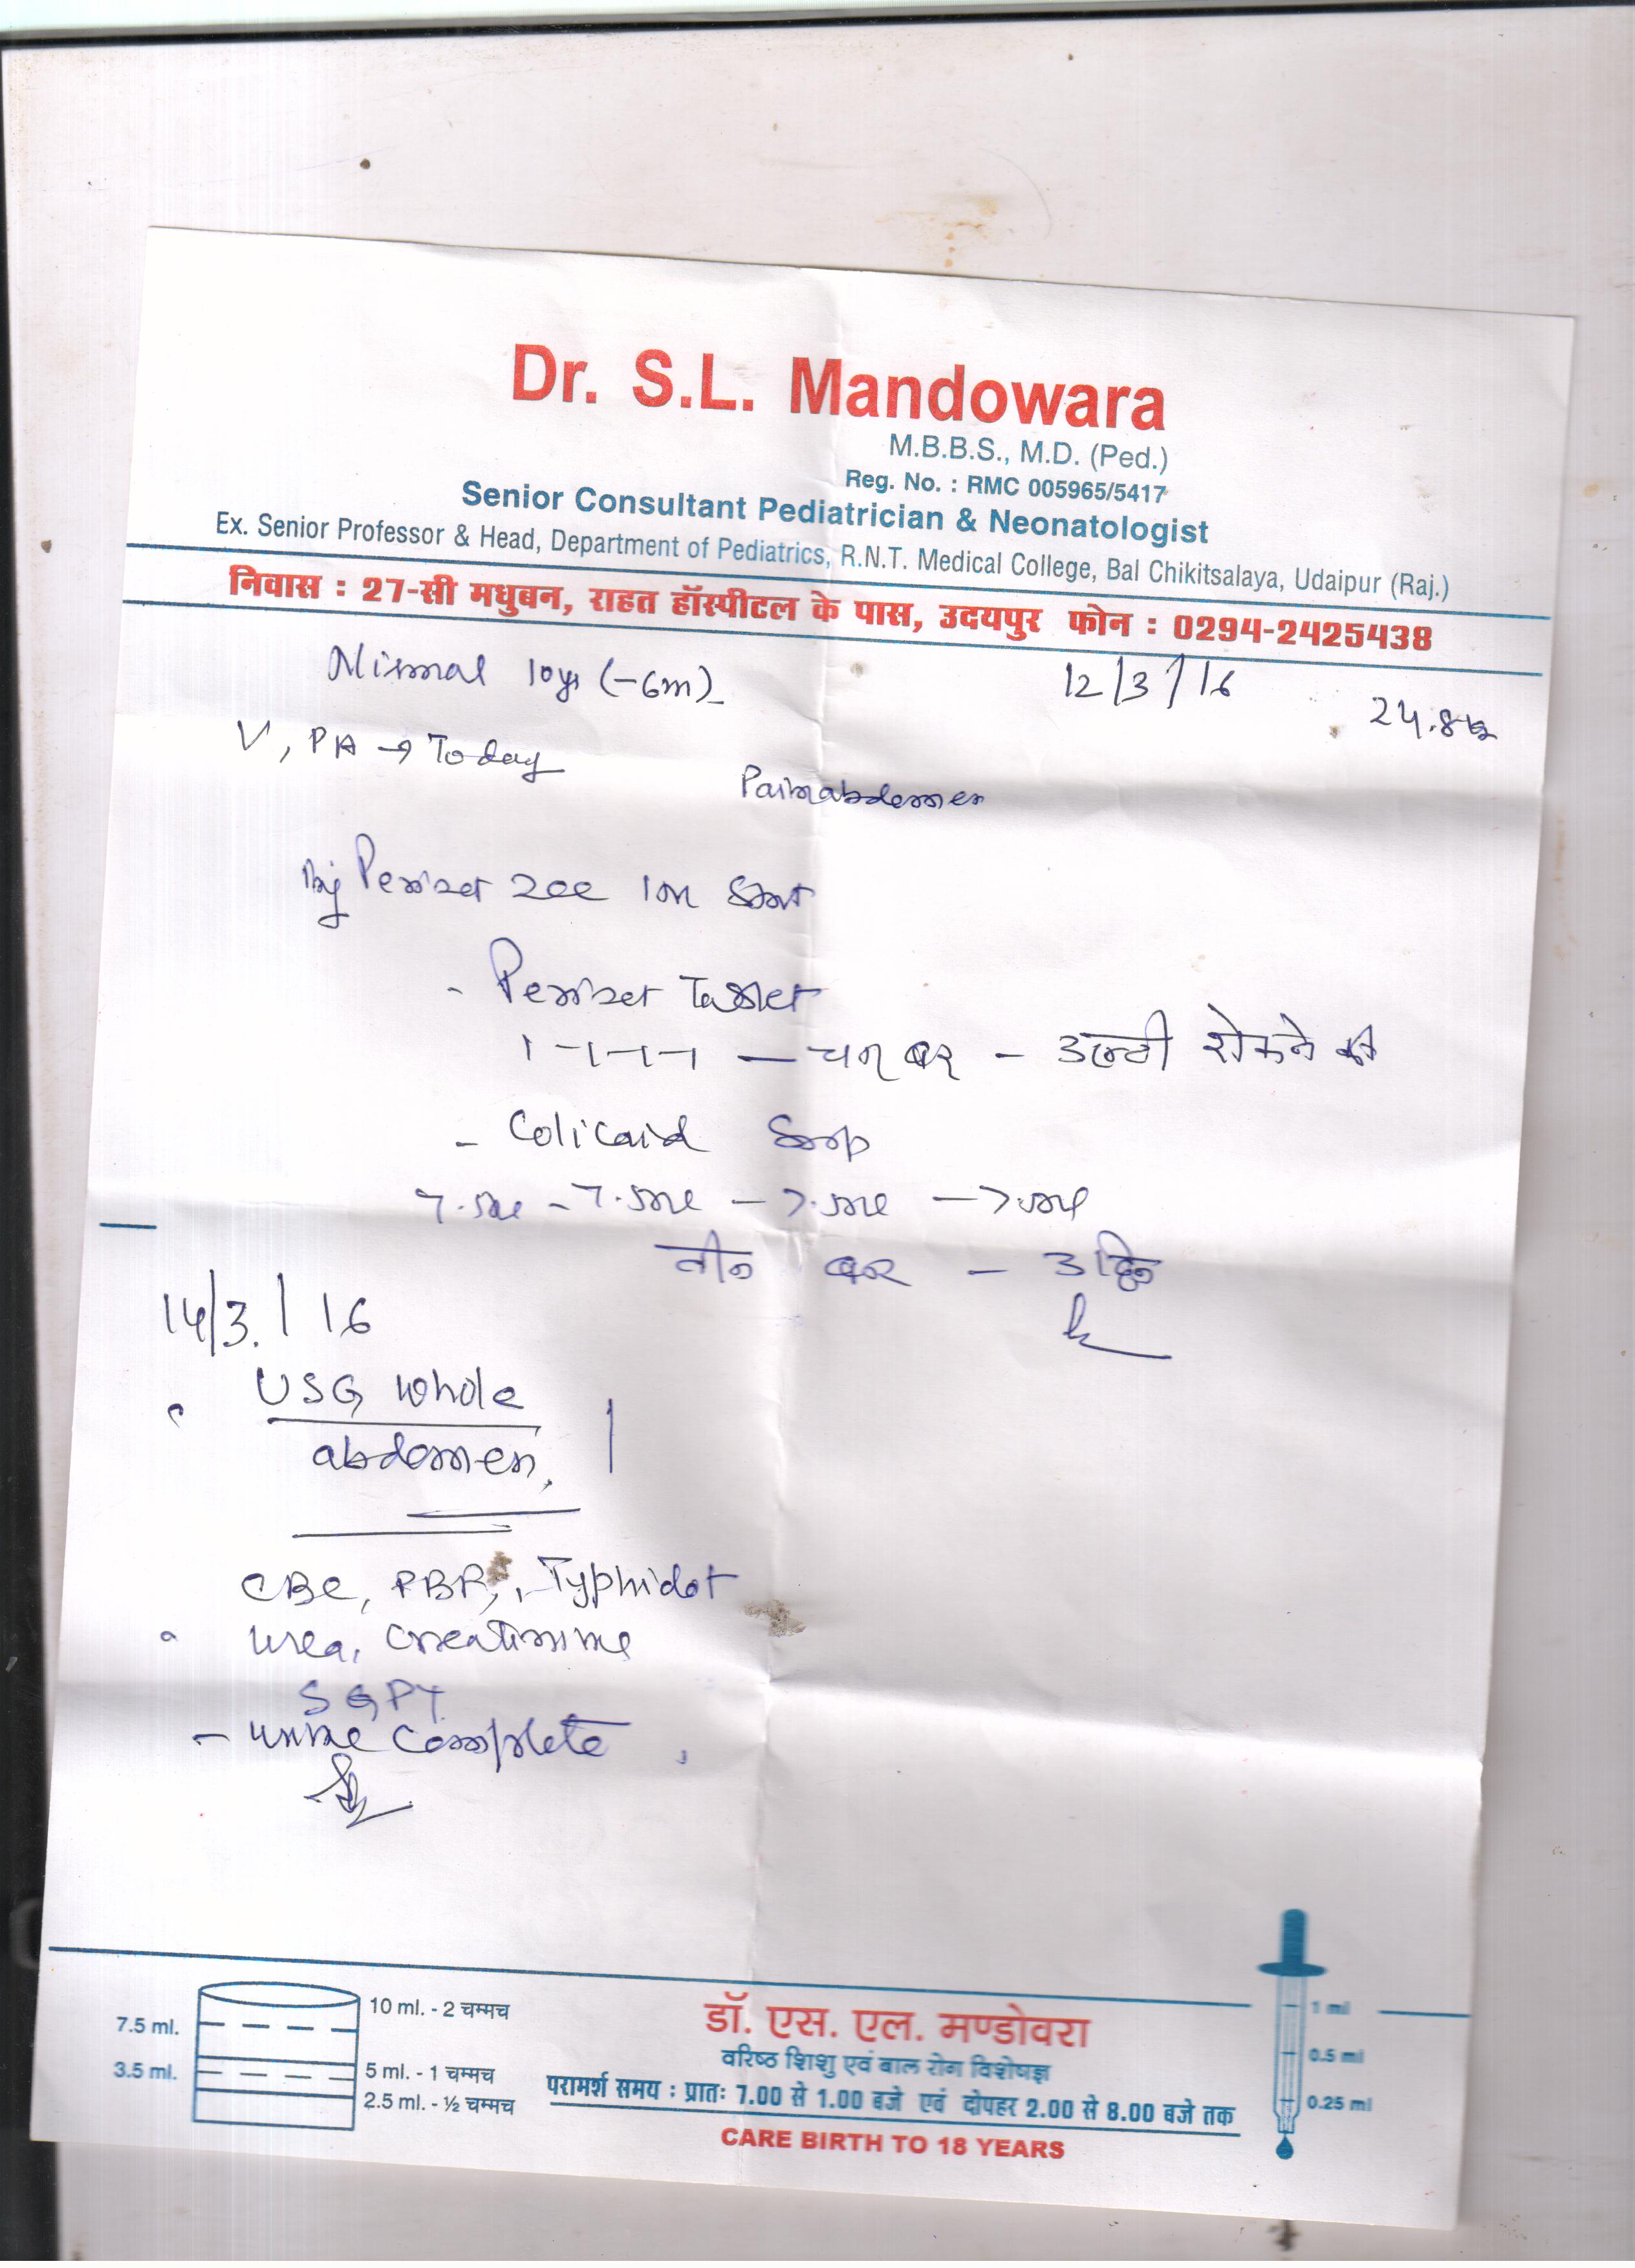 Dr. S.L. Mandowara
M.B.B.S., M.D. (Ped.)
Reg. No. : RMC 005965/5417
Senior Consultant Pediatrician & Neonatologist
Ex. Senior Professor & Head, Department of Pediatrics, R.N.T. Medical College, Bal Chikitsalaya, Udaipur (Raj.)
निवास : 27-सी मधुबन, राहत हॉस्पीटल के पास, उदयपुर फोन : 0294-2425438
10yr (-6m)
12/3/16
24.8
V, PA → Today
Pain abdomen
Inj 2cc
Tablet
1-1-1-1 — बार - उल्टी रोकने की
- Colicaid
7.5ml - 7.5ml - 7.5ml - 7.5ml
तीन बार -
14/3/16
USG Whole
abdomen
CBC, PBF, Typhidot
Urea, Creatinine
SGPT
- Urine Complete
10 ml. - 2 चम्मच
7.5 ml.
5 ml. - 1 चम्मच
3.5 ml.
2.5 ml. - ½ चम्मच
डॉ. एस. एल. मण्डोवरा
वरिष्ठ शिशु एवं बाल रोग विशेषज्ञ
परामर्श समय : प्रातः 7.00 से 1.00 बजे एवं दोपहर 2.00 से 8.00 बजे तक
CARE BIRTH TO 18 YEARS
1 ml
0.5 ml
0.25 ml